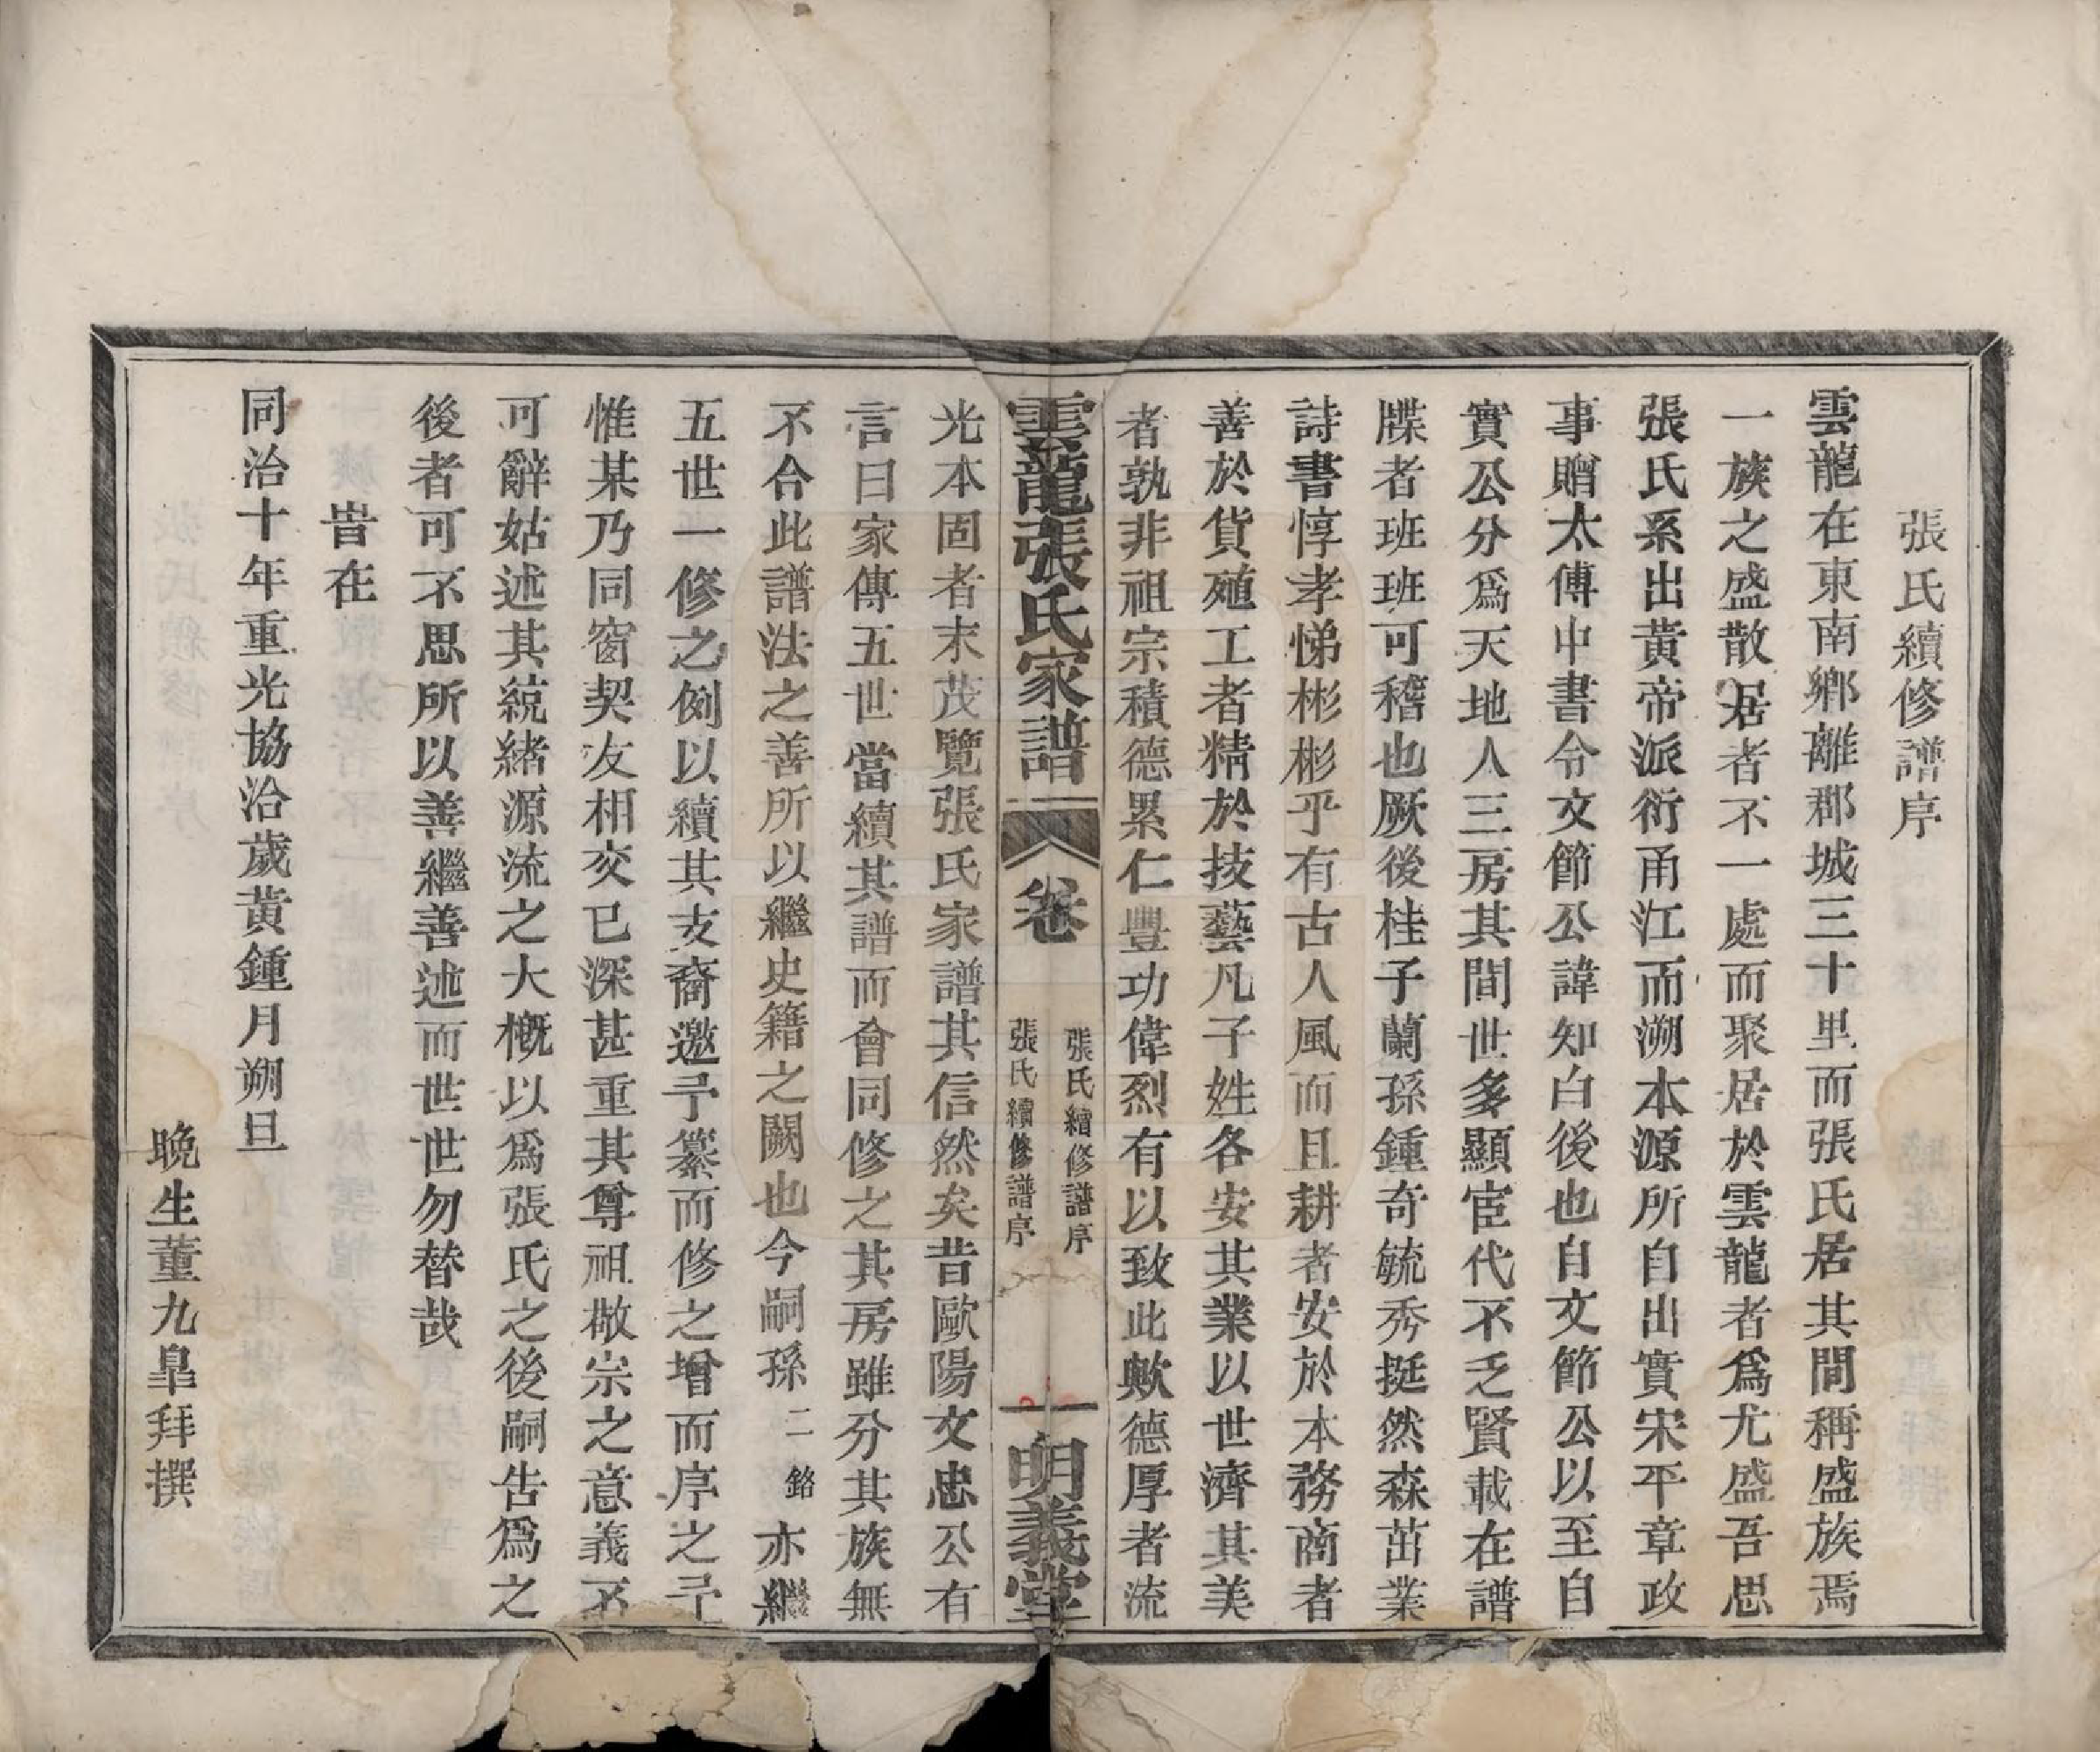 張氏續修譜序
雲龍在東南鄉離郡城三十里而張氏居其間稱盛族焉
一族之盛散居者不一處而聚居於雲龍者爲尤盛吾思
張氏系出黃帝派衍甬江而溯本源所自出實宋平章政
事贈太傅中書令文節公諱知白後也自文節公以至自
實公分爲天地人三房其間世多顯宦代不乏賢載在譜
牒者班班可稽也厥後桂子蘭孫鍾奇毓秀挺然森茁業
詩書惇孝悌彬彬乎有古人風而且耕者安於本務商者
善於貨殖工者精於技藝凡子姓各安其業以世濟其美
者孰非祖宗積德累仁豐功偉烈有以致此歟德厚者流
雲龍張氏家譜
卷
張氏續修譜序
張氏續修譜序
一
明義堂
光本固者末茂覽張氏家譜其信然矣昔歐陽文忠公有
言曰家傳五世當續其譜而會同修之其房雖分其族無
不合此譜法之善所以繼史籍之闕也今嗣孫二銘亦繼
五世一修之例以續其支裔邀予纂而修之增而序之予
惟某乃同窗契友相交已深甚重其尊祖敬宗之意義不
可辭姑述其統緒源流之大概以爲張氏之後嗣告爲之
後者可不思所以善繼善述而世世勿替哉
旹在
同治十年重光協洽歲黃鍾月朔旦
晚生董九皐拜撰